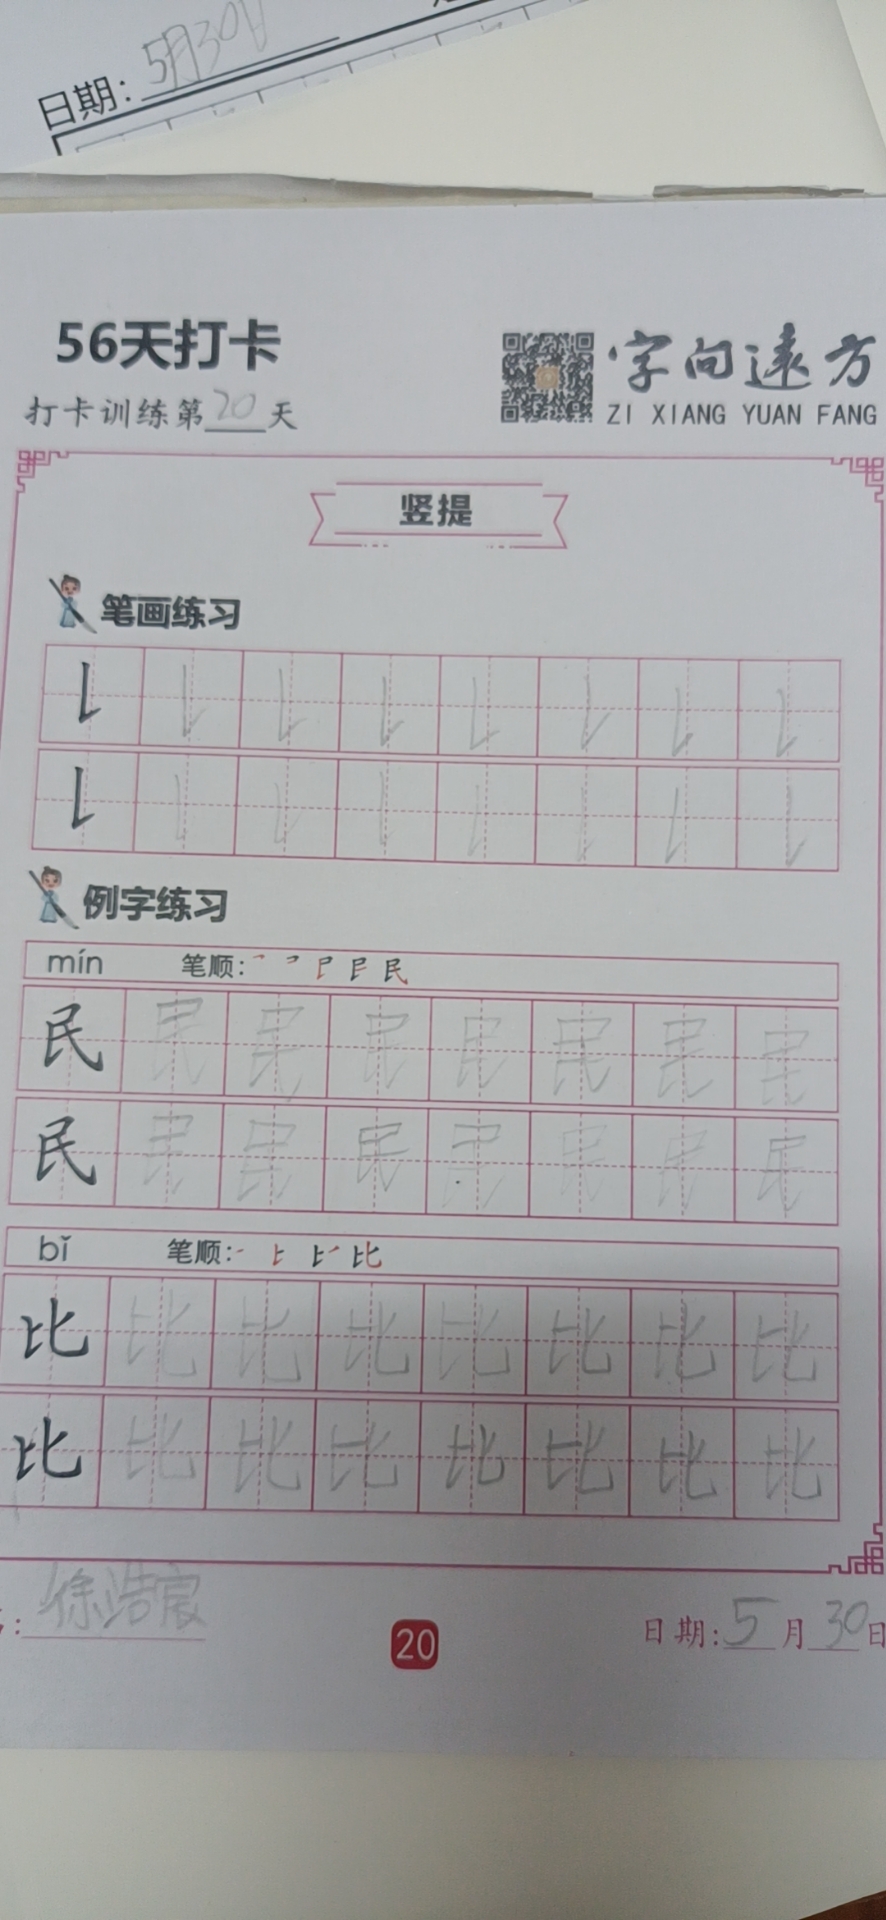 日期：5月30日
56天打卡
打卡训练第20天
字向遠方
ZI XIANG YUAN FANG
竖提
笔画练习
例字练习
mín 笔顺：民
民民民民民民民民
民民民民民民民民
bǐ 笔顺：比
比比比比比比比比
比比比比比比比比
徐浩宸
20
日期：5月30日